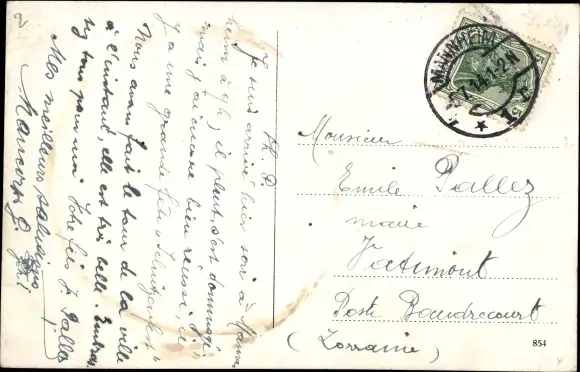 2
Ch. P.
Je suis arrivé hier soir à Mann-
heim à 9h, il pleut, c'est dommage,
mais j'ai encore bien réussi, il
y a une grande fête
Nous avons fait le tour de la ville
à l'instant, elle est très belle. Embras-
sez tous pour moi Votre fils J. Pallez
Mes meilleures salutations
MANNHEIM
1-2N
5
Monsieur
Emile Pallez
maire
Vatimont
Poste Baudrecourt
(Lorraine)
854